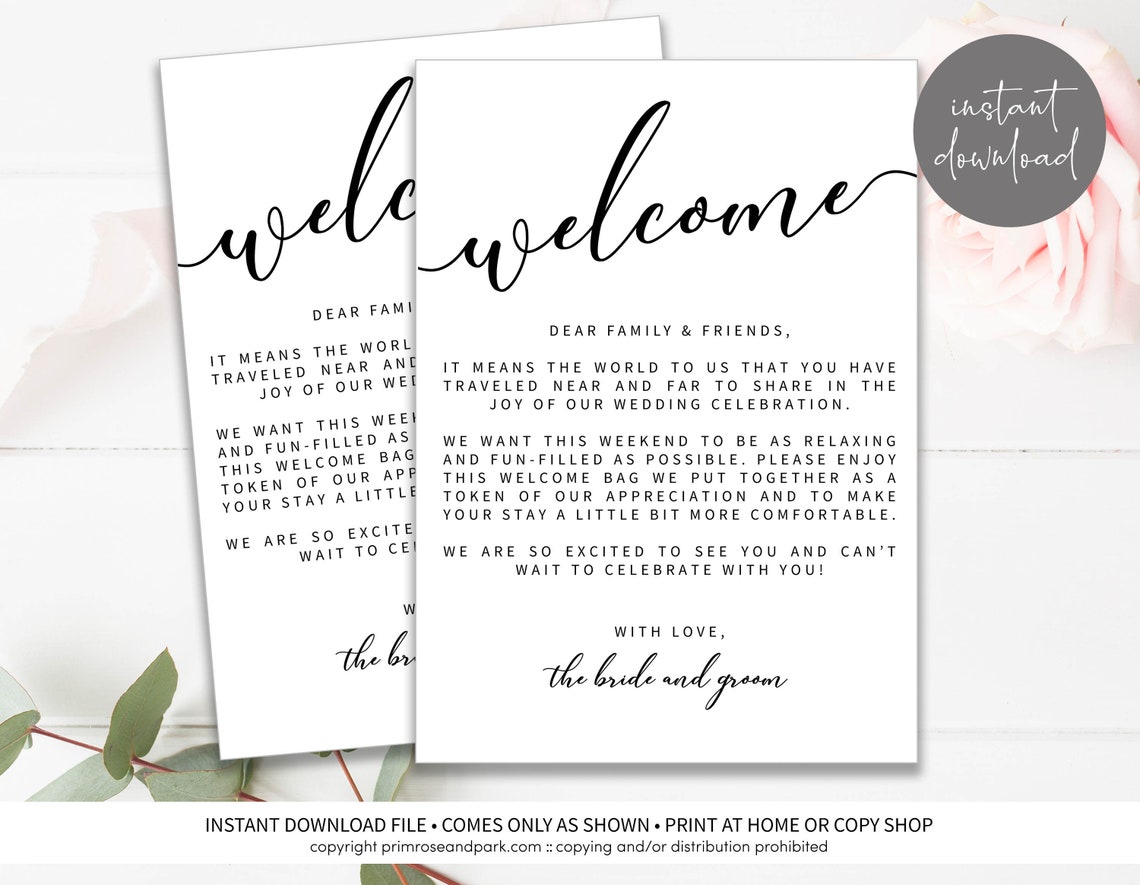 welcome
DEAR FAMILY & FRIENDS,
IT MEANS THE WORLD TO US THAT YOU HAVE
TRAVELED NEAR AND FAR TO SHARE IN THE
JOY OF OUR WEDDING CELEBRATION.
WE WANT THIS WEEKEND TO BE AS RELAXING
AND FUN-FILLED AS POSSIBLE. PLEASE ENJOY
THIS WELCOME BAG WE PUT TOGETHER AS A
TOKEN OF OUR APPRECIATION AND TO MAKE
YOUR STAY A LITTLE BIT MORE COMFORTABLE.
WE ARE SO EXCITED TO SEE YOU AND CAN'T
WAIT TO CELEBRATE WITH YOU!
WITH LOVE,
the bride and groom
welc
DEAR FAMI
IT MEANS THE WORL
TRAVELED NEAR AND
JOY OF OUR WED
WE WANT THIS WEEK
AND FUN-FILLED AS
THIS WELCOME BAG
TOKEN OF OUR APP
YOUR STAY A LITTLE
WE ARE SO EXCITE
WAIT TO CE
W
the br
instant
download
INSTANT DOWNLOAD FILE • COMES ONLY AS SHOWN • PRINT AT HOME OR COPY SHOP
copyright primroseandpark.com :: copying and/or distribution prohibited